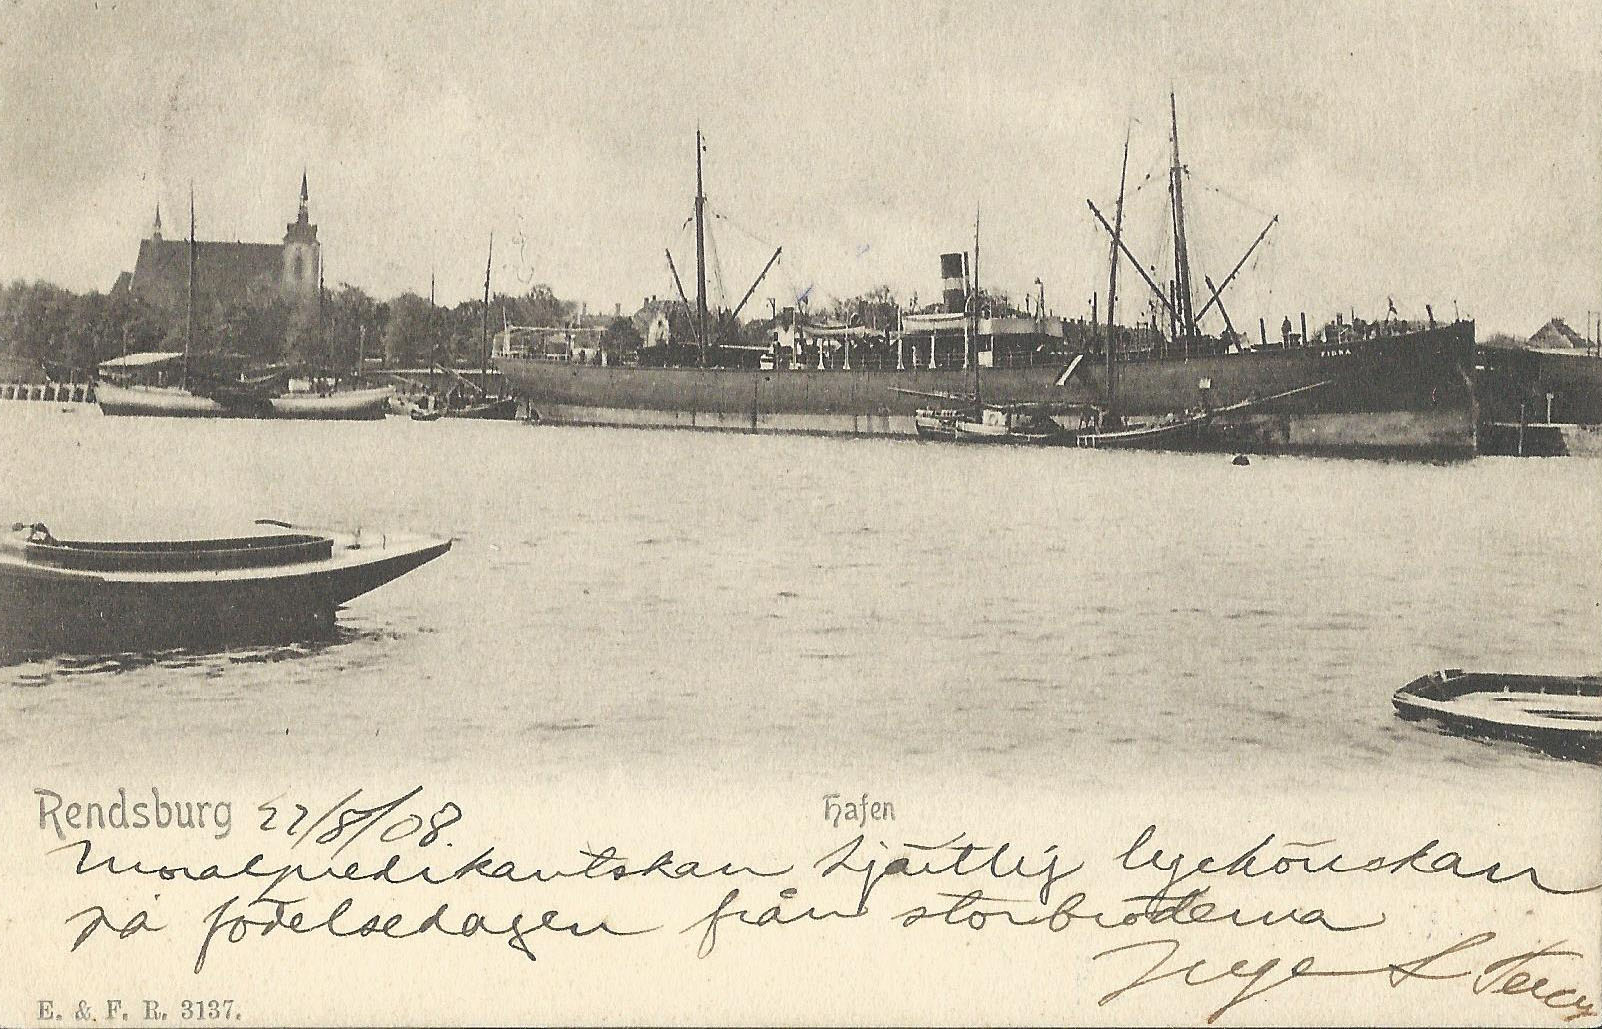 FIONA
Rendsburg 27/8/08.
Hafen
Moralpredikantskan hjärtlig lyckönskan
på födelsedagen från storbröderna
Inge & Percy
E. & F. R. 3137.